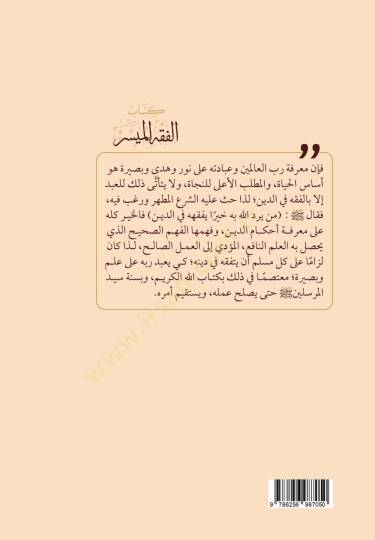 كتاب
الفقه الميسر
فإن معرفة رب العالمين وعبادته على نور وهدى وبصيرة هو
أساس الحياة، والمطلب الأعلى للنجاة، ولا يتأتَّى ذلك للعبد
إلا بالفقه في الدين؛ لذا حث عليه الشرع المطهر ورغب فيه،
فقال ﷺ : (من يرد الله به خيرًا يفقهه في الدين) فالخير كله
على معرفة أحكام الدين، وفهمها الفهم الصحيح الذي
يحصل به العلم النافع، المؤدي إلى العمل الصالح، لذا كان
لزامًا على كل مسلم أن يتفقه في دينه؛ كي يعبد ربه على علم
وبصيرة؛ معتصمًا في ذلك بكتاب الله الكريم، وبسنة سيد
المرسلين ﷺ حتى يصلح عمله، ويستقيم أمره.
9 786256 987050